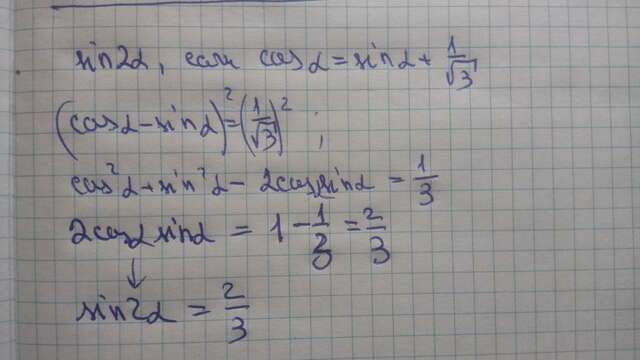 sin2α, если cosα = sinα + 1/√3
(cosα - sinα)² = (1/√3)² ;
cos²α + sin²α - 2cosαsinα = 1/3
2cosαsinα = 1 - 1/3 = 2/3
↓
sin2α = 2/3